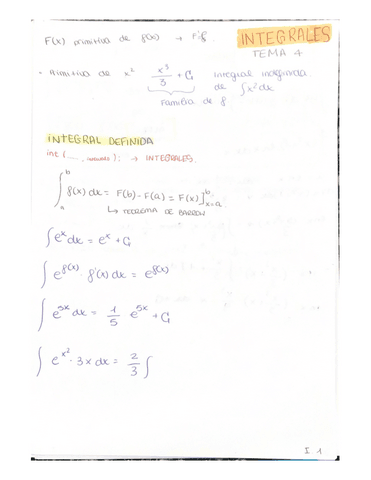 F(x) primitiva de f(x) → F'=f
INTEGRALES
TEMA 4
- Primitiva de x² x³/3 + C integral indefinida
de ∫x²dx
Familia de f
INTEGRAL DEFINIDA
int (...., ): → INTEGRALES.
∫_a^b f(x) dx = F(b) - F(a) = F(x)]_{x=a}^b
↳ TEOREMA DE BARROW
∫ e^x dx = e^x + C
∫ e^{f(x)} · f'(x) dx = e^{f(x)}
∫ e^{5x} dx = 1/5 e^{5x} + C
∫ e^{x²} · 3x dx = 2/3 ∫
I. 1